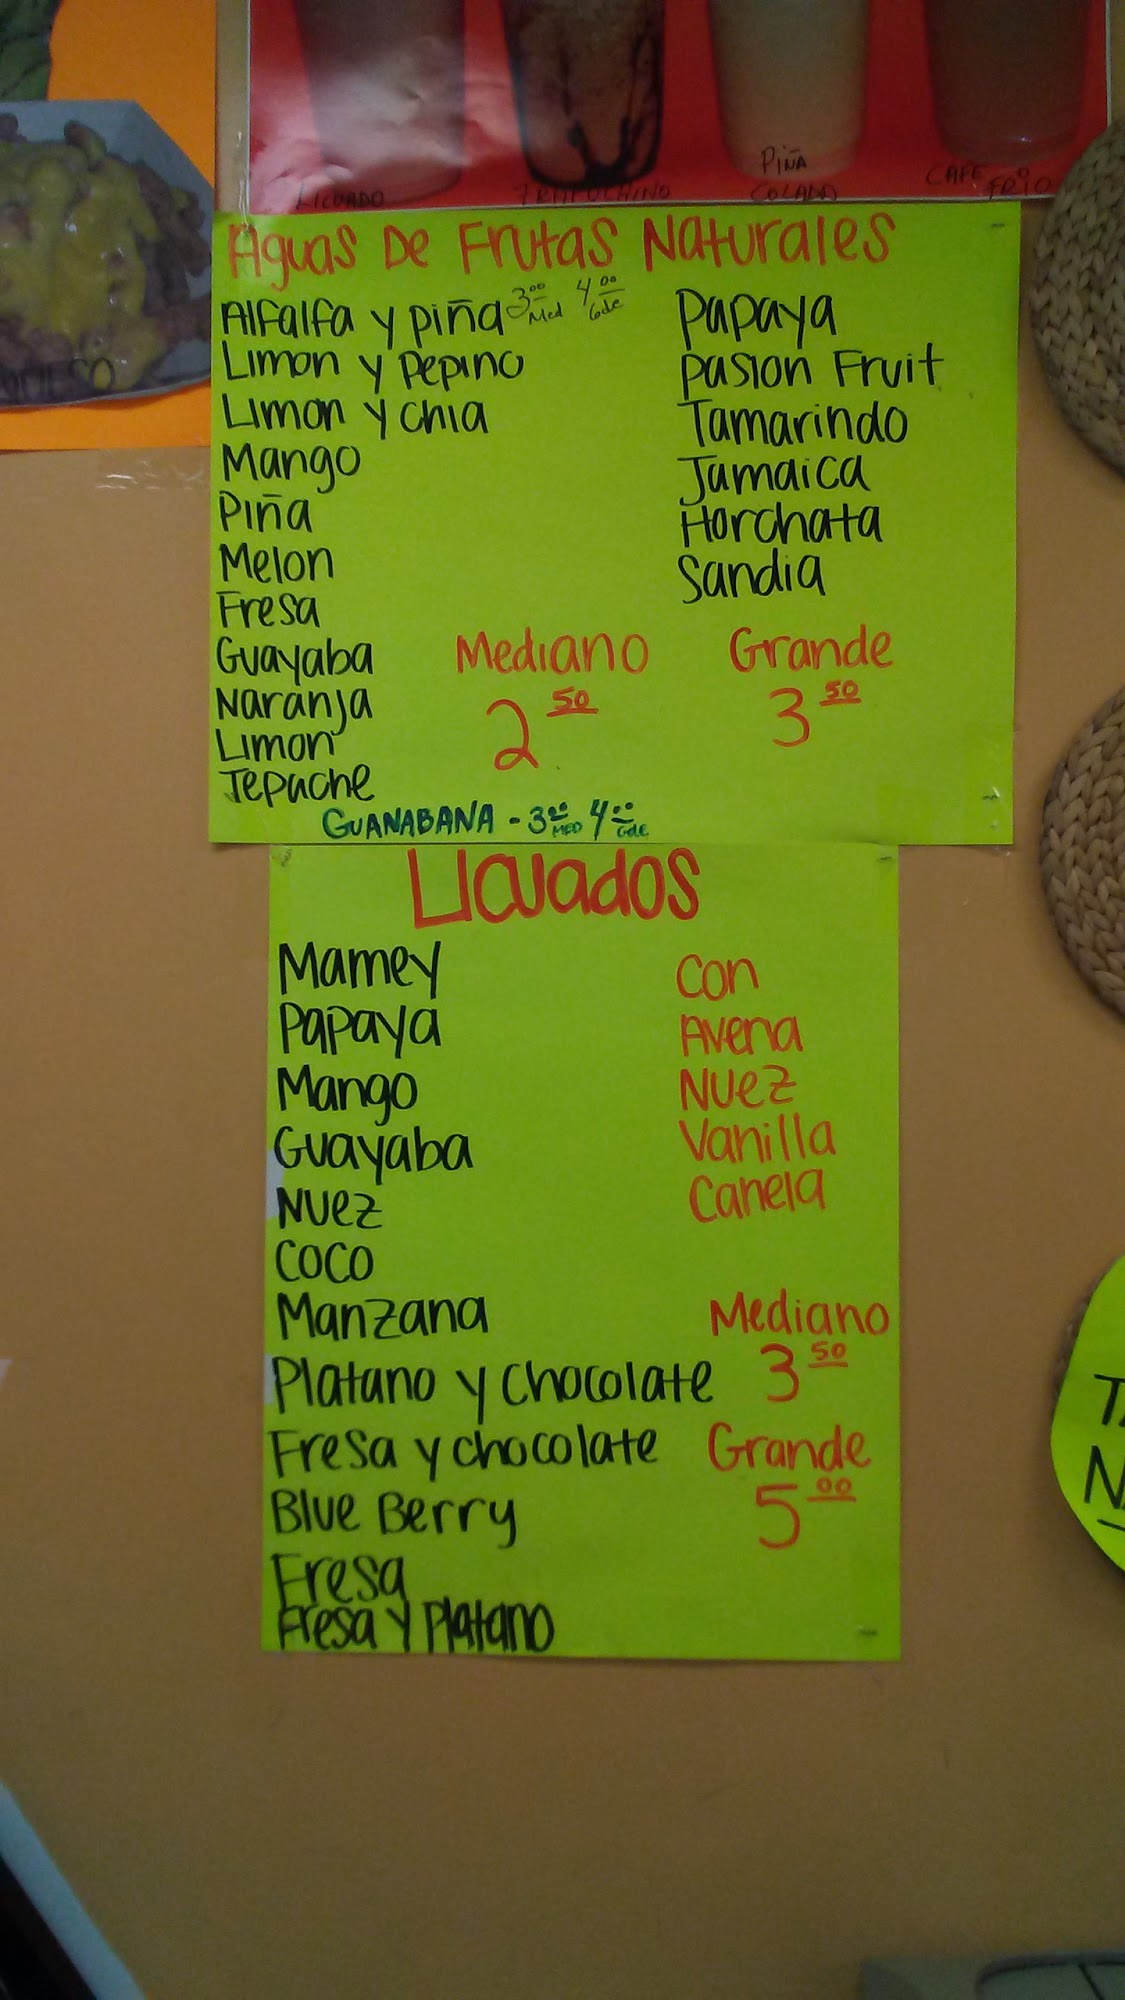 LICUADO
PIÑA
COLADA
CAFE
FRIO
Aguas De Frutas Naturales
Alfalfa y piña 3.00 Med 4.00 Gde
Limon y pepino
Limon y chia
Mango
Piña
Melon
Fresa
Guayaba
Naranja
Limon
Tepache
Papaya
Pasion Fruit
Tamarindo
Jamaica
Horchata
Sandia
Mediano
2 50
Grande
3 50
GUANABANA - 3.00 MED 4.00 Gde
Licuados
Mamey
Papaya
Mango
Guayaba
Nuez
Coco
Manzana
Platano y Chocolate
Fresa y chocolate
Blue Berry
Fresa
Fresa y Platano
Con
Avena
Nuez
Vanilla
Canela
Mediano
3 50
Grande
5 00